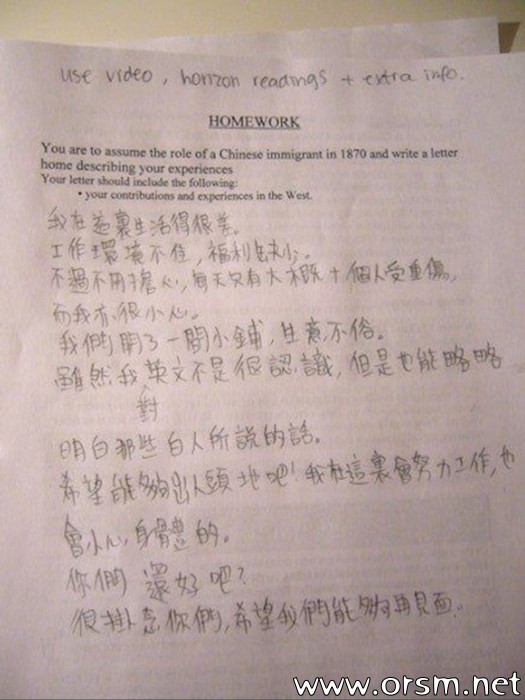 use video, horizon readings + extra info.
HOMEWORK
You are to assume the role of a Chinese immigrant in 1870 and write a letter
home describing your experiences
Your letter should include the following:
• your contributions and experiences in the West.
我在這裏生活得很差。
工作環境不佳，福利缺少。
不過不用擔心，每天只有大概十個人受重傷，
而我亦很小心。
我們開了一間小鋪，生意不俗。
雖然我對英文不是很認識，但是也能略略
明白那些白人所說的話。
希望能夠出人頭地吧！我在這裏會努力工作，也
會小心身體的。
你們還好吧？
很掛念你們，希望我們能夠再見面。
www.orsm.net